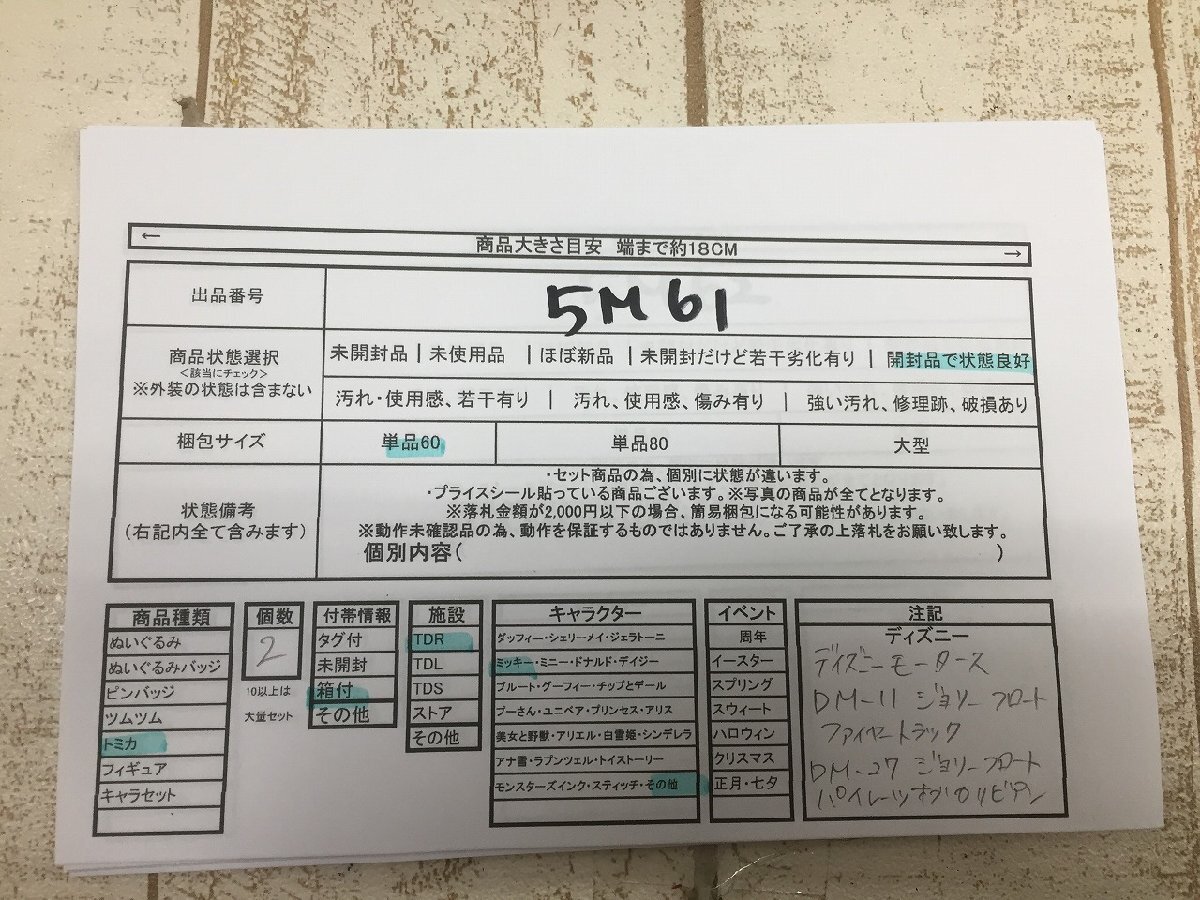 ← 商品大きさ目安 端まで約18CM →
出品番号
5M61
商品状態選択
<該当にチェック>
※外装の状態は含まない
未開封品 | 未使用品 | ほぼ新品 | 未開封だけど若干劣化有り | 開封品で状態良好
汚れ・使用感、若干有り | 汚れ、使用感、傷み有り | 強い汚れ、修理跡、破損あり
梱包サイズ
単品60
単品80
大型
状態備考
(右記内全て含みます)
・セット商品の為、個別に状態が違います。
・プライスシール貼っている商品ございます。※写真の商品が全てとなります。
※落札金額が2,000円以下の場合、簡易梱包になる可能性があります。
※動作未確認品の為、動作を保証するものではありません。ご了承の上落札をお願い致します。
個別内容( )
商品種類
ぬいぐるみ
ぬいぐるみバッジ
ピンバッジ
ツムツム
トミカ
フィギュア
キャラセット
個数
2
10以上は
大量セット
付帯情報
タグ付
未開封
箱付
その他
施設
TDR
TDL
TDS
ストア
その他
キャラクター
ダッフィー・シェリーメイ・ジェラトーニ
ミッキー・ミニー・ドナルド・デイジー
プルート・グーフィー・チップとデール
プーさん・ユニベア・プリンセス・アリス
美女と野獣・アリエル・白雪姫・シンデレラ
アナ雪・ラプンツェル・トイストーリー
モンスターズインク・スティッチ・その他
イベント
周年
イースター
スプリング
スウィート
ハロウィン
クリスマス
正月・七夕
注記
ディズニー
ディズニーモータース
DM-11 ジョリーフロート
ファイヤートラック
DM-27 ジョリーフロート
パイレーツオブカリビアン